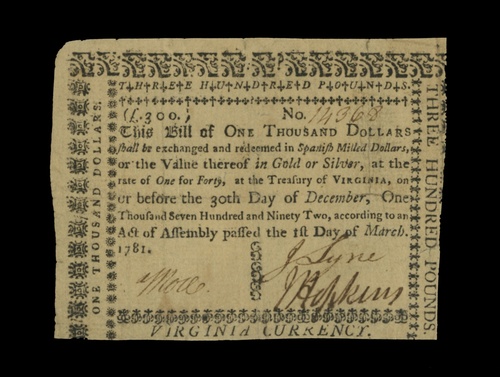 T·H·R·E·E H·U·N·D·R·E·D P·O·U·N·D·S.
(£.300.) No. 14368
This Bill of ONE THOUSAND DOLLARS
shall be exchanged and redeemed in Spanish Milled Dollars,
or the Value thereof in Gold or Silver, at the
rate of One for Forty, at the Treasury of VIRGINIA, on
or before the 30th Day of December, One
Thousand Seven Hundred and Ninety Two, according to an
Act of Assembly passed the 1st Day of March.
1781.
J Lyne
J Hopkins
VIRGINIA CURRENCY.
ONE THOUSAND DOLLARS.
THREE HUNDRED POUNDS.